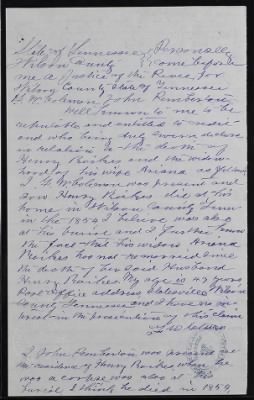 State of Tennessee } Personally
Wilson County } came before
me a Justice of the Peace for
Wilson County State of Tennessee
G. W. Coleman John Pemberton
Well known to me to be
reputable and entitled to credit
and who being duly sworn declare
in relation to the death of
Henry Raikes and the widow
hood of his wife Ariana as follows
I G. W. Coleman was present and
saw Henry Raikes die at his
home in Wilson County Tenn
in the 1859 I believe was also
at the burial and I further know
the fact that his widow Ariana
Raikes has not remarried since
the death of her said Husband
Henry Raikes My age is 49 years
Post Office address
County Tennessee and I have no in
terest in the prosecution of this claim
G W Coleman
I John Pemberton was present at
the residence of Henry Raikes when he
was a corpse was also at his
burial I think he died in 1859